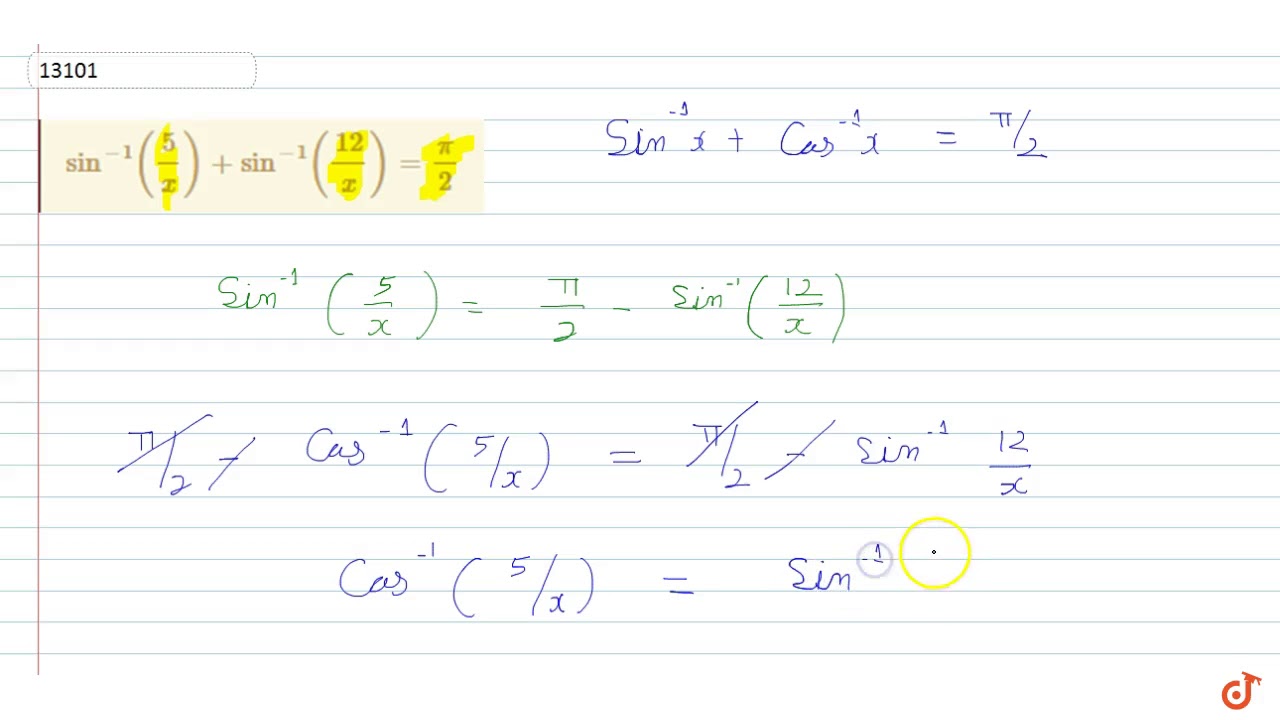 13101
sin⁻¹(5/x) + sin⁻¹(12/x) = π/2
Sin⁻¹x + Cos⁻¹x = π/2
Sin⁻¹(5/x) = π/2 - Sin⁻¹(12/x)
π/2 - Cos⁻¹(5/x) = π/2 - Sin⁻¹ 12/x
Cos⁻¹(5/x) = Sin⁻¹